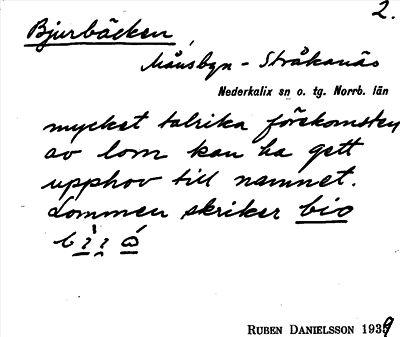 2.
Bjurbäcken,
Månsbyn - Stråkanäs
Nederkalix sn o. tg. Norrb. län
mycket talrika förekomsten
av lom kan ha gett
upphov till namnet.
Lommen skriker bio
RUBEN DANIELSSON 1939